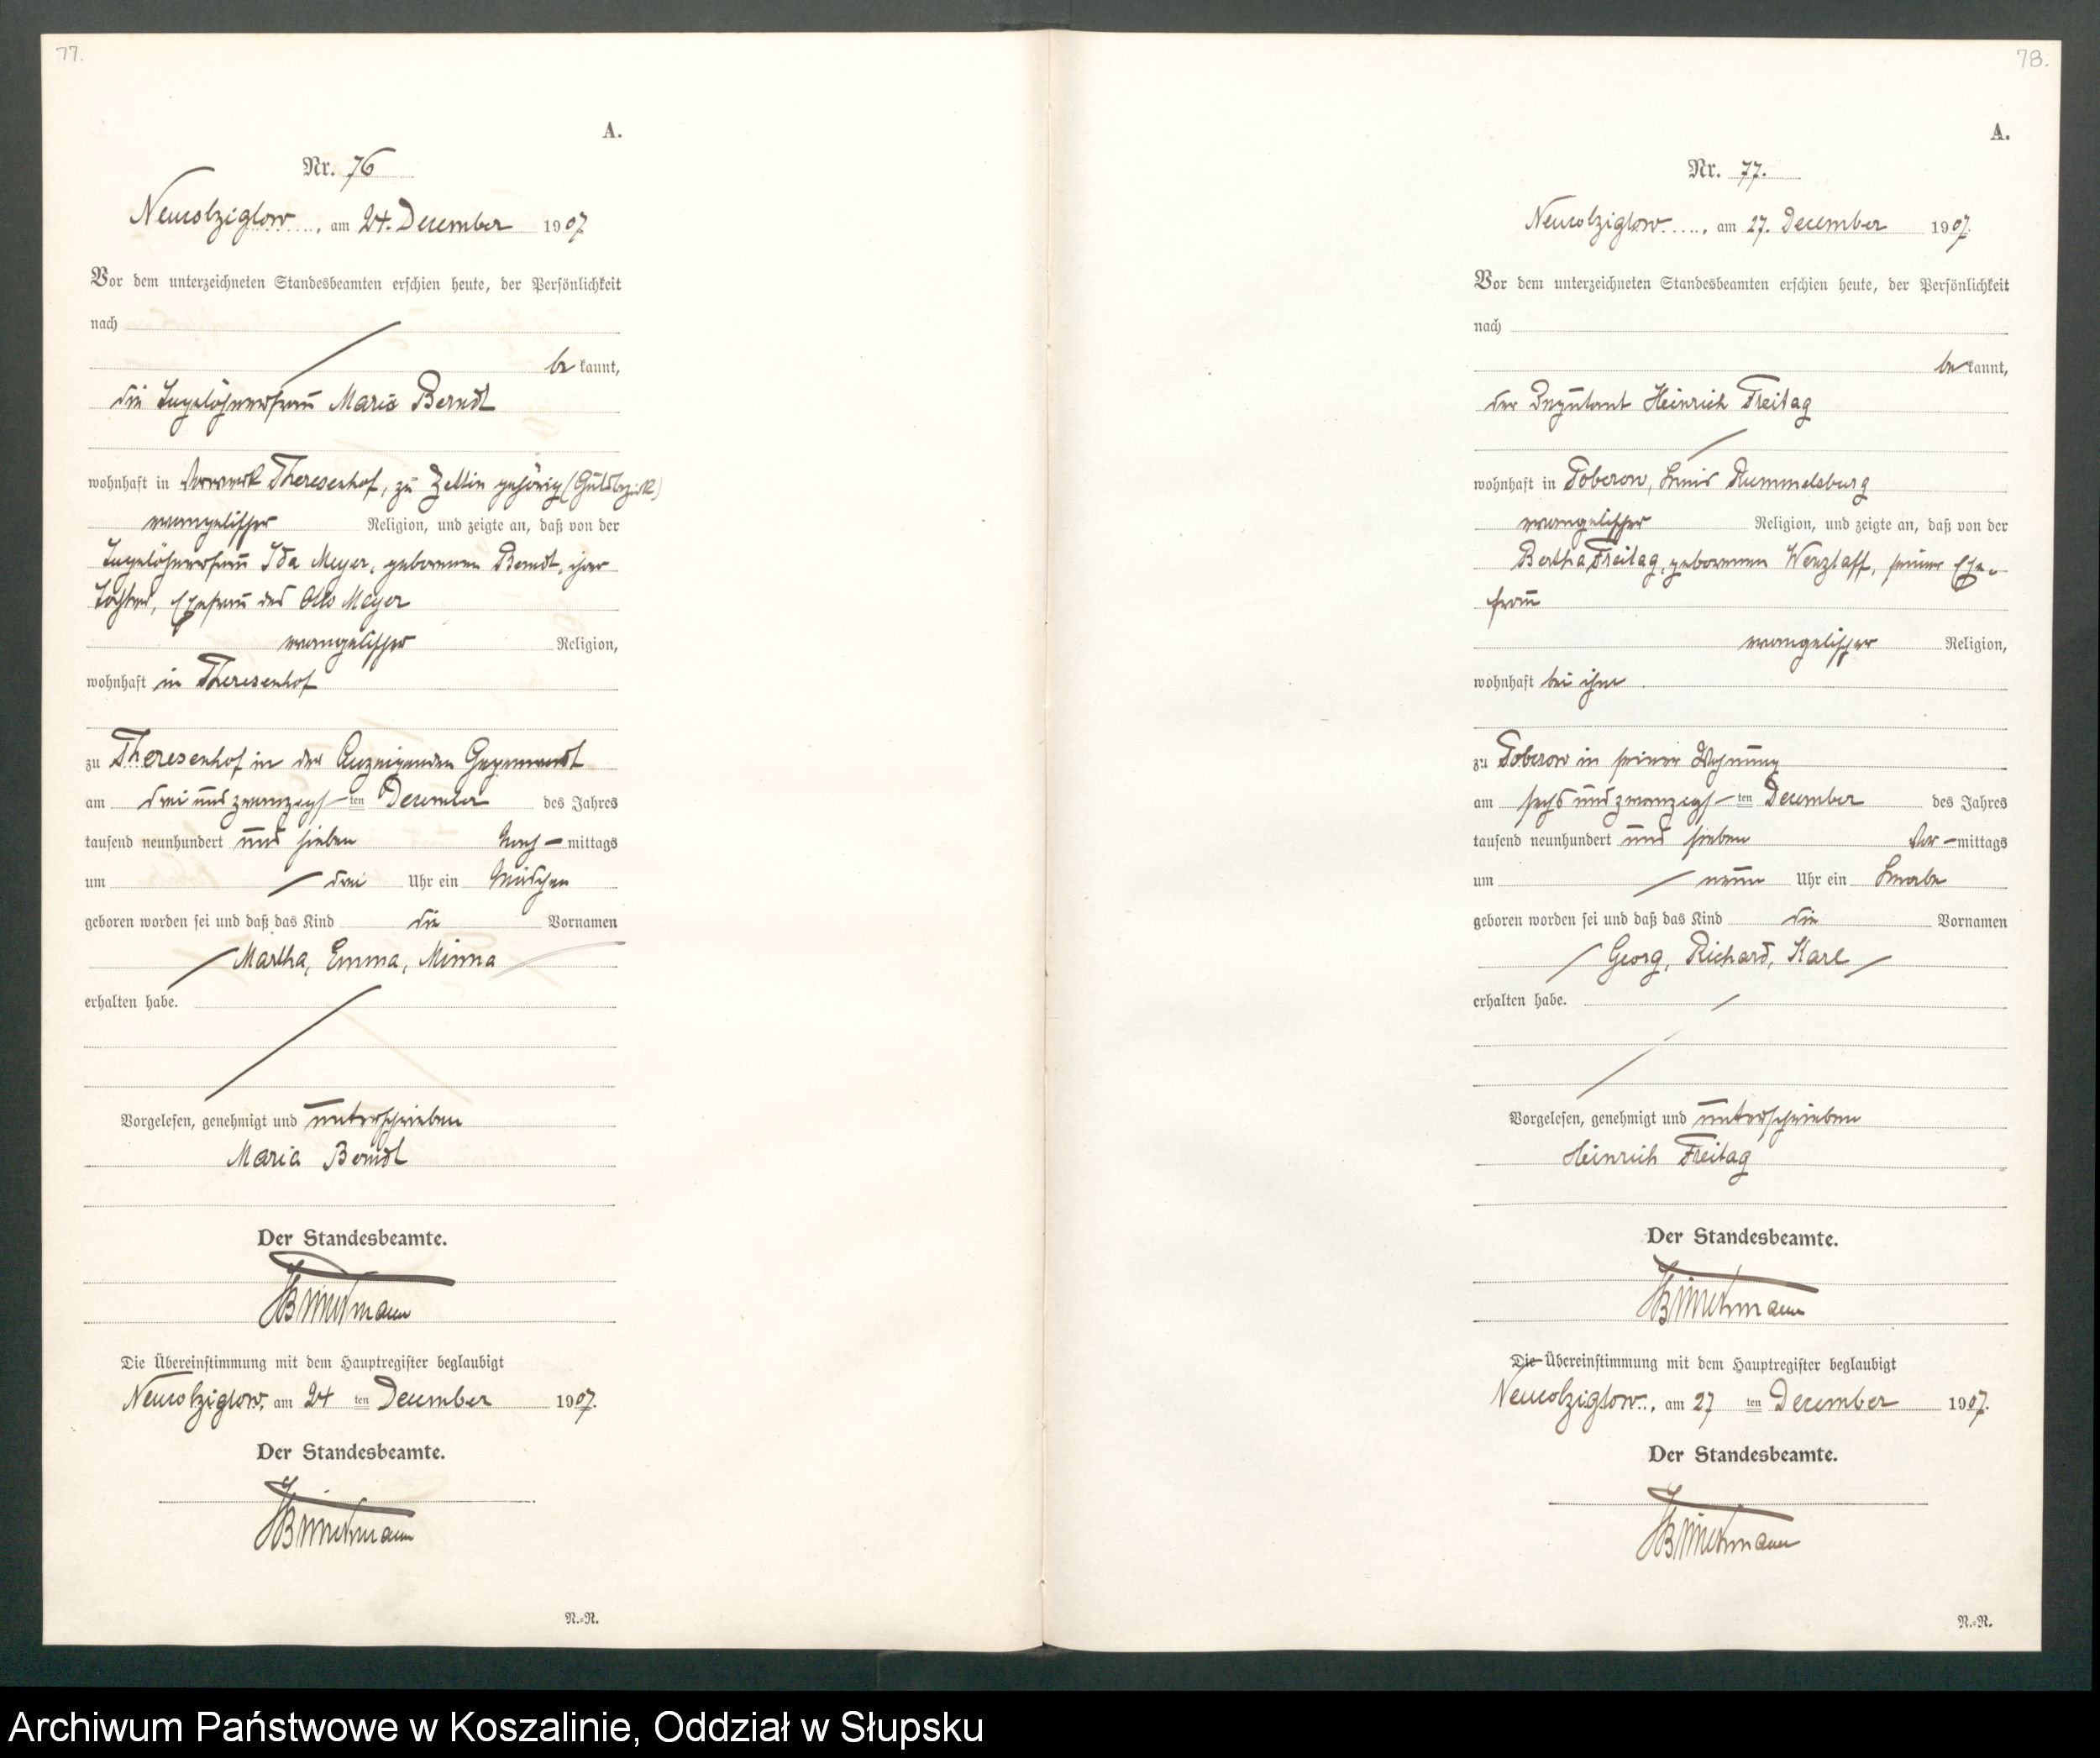 77.
A.
Nr. 76
Neukolziglow, am 24. December 1907
Vor dem unterzeichneten Standesbeamten erschien heute, der Persönlichkeit
nach
be kannt,
die Tagelöhnerfrau Maria Berndt
wohnhaft in Vorwerk Theresenhof, zu Zettin gehörig (Gutsbezirk)
evangelischer Religion, und zeigte an, daß von der
Tagelöhnerfrau Ida Meyer, geborenen Berndt, ihrer
Tochter, Ehefrau des Otto Meyer
evangelischer Religion,
wohnhaft in Theresenhof
zu Theresenhof in der Anzeigenden Gegenwart
am drei und zwanzigsten December des Jahres
tausend neunhundert und sieben Nach-mittags
um drei Uhr ein Mädchen
geboren worden sei und daß das Kind die Vornamen
Martha, Emma, Minna
erhalten habe.
Vorgelesen, genehmigt und unterschrieben
Maria Berndt
Der Standesbeamte.
Die Übereinstimmung mit dem Hauptregister beglaubigt
Neukolziglow, am 24 ten December 1907.
Der Standesbeamte.
N.-N.
78.
A.
Nr. 77.
Neukolziglow, am 27. December 1907.
Vor dem unterzeichneten Standesbeamten erschien heute, der Persönlichkeit
nach
be kannt,
der Deputant Heinrich Freitag
wohnhaft in Poberow, Kreis Rummelsburg
evangelischer Religion, und zeigte an, daß von der
Bertha Freitag, geborenen Wenzlaff, seiner Ehe-
frau
evangelischer Religion,
wohnhaft bei ihm
zu Poberow in seiner Wohnung
am sechs und zwanzigsten December des Jahres
tausend neunhundert und sieben Vor-mittags
um neun Uhr ein Knabe
geboren worden sei und daß das Kind die Vornamen
Georg, Richard, Karl
erhalten habe.
Vorgelesen, genehmigt und unterschrieben
Heinrich Freitag
Der Standesbeamte.
Die Übereinstimmung mit dem Hauptregister beglaubigt
Neukolziglow, am 27 ten December 1907.
Der Standesbeamte.
N.-N.
Archiwum Państwowe w Koszalinie, Oddział w Słupsku